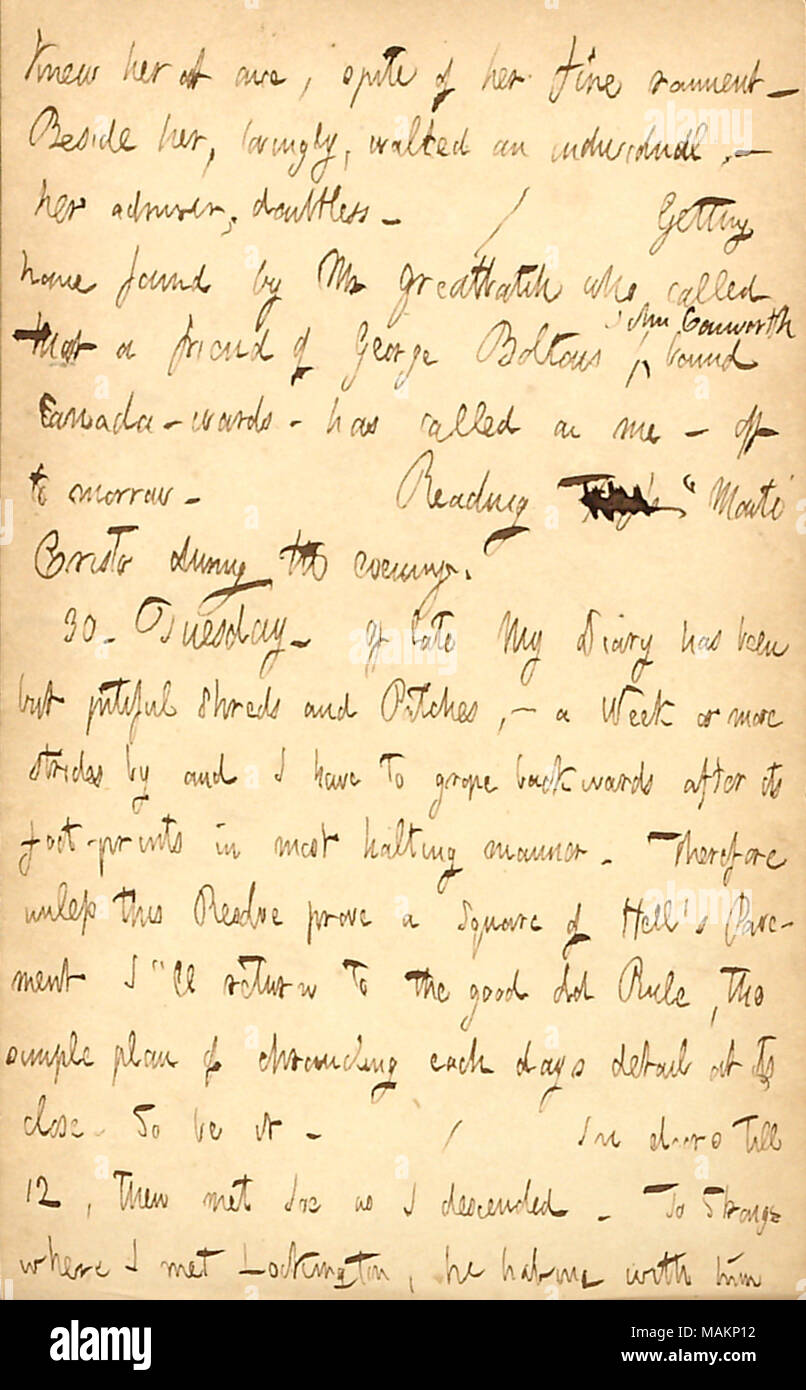 knew her at once, spite of her fine raiment —
Beside her, lovingly, walked an individual, —
her admirer, doubtless — / Getting
home found by Mr Greatbatch who called
that a friend of George Boltons, John Conworth, bound
Canada-wards - has called on me - off
to morrow — Reading "Monte
Cristo during the evening.
30. Tuesday. Of late My Diary has been
but pitiful Shreds and Patches, — a Week or more
strides by and I have to grope backwards after its
foot-prints in most halting manner. Therefore
unless this Resolve prove a Square of Hell's Pave-
ment I'll return to the good old Rule, the
simple plan of chronicling each days detail at its
close. So be it — / In doors till
12, then met Joe as I descended. To Strongs
where I met Lockington, he having with him
alamy
Image ID: MAKP12
www.alamy.com